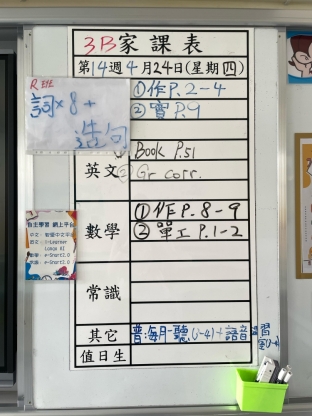 3B家課表
第14週4月24日(星期四)
R班
詞×8+
造句
①作P.2-4
②寶P.9
英文
Book P.51
② Gr corr.
數學
①作P.8-9
②單工P.1-2
自主學習 網上平台
常識
其它
普:每月一聽(1-4)+語音
值日生